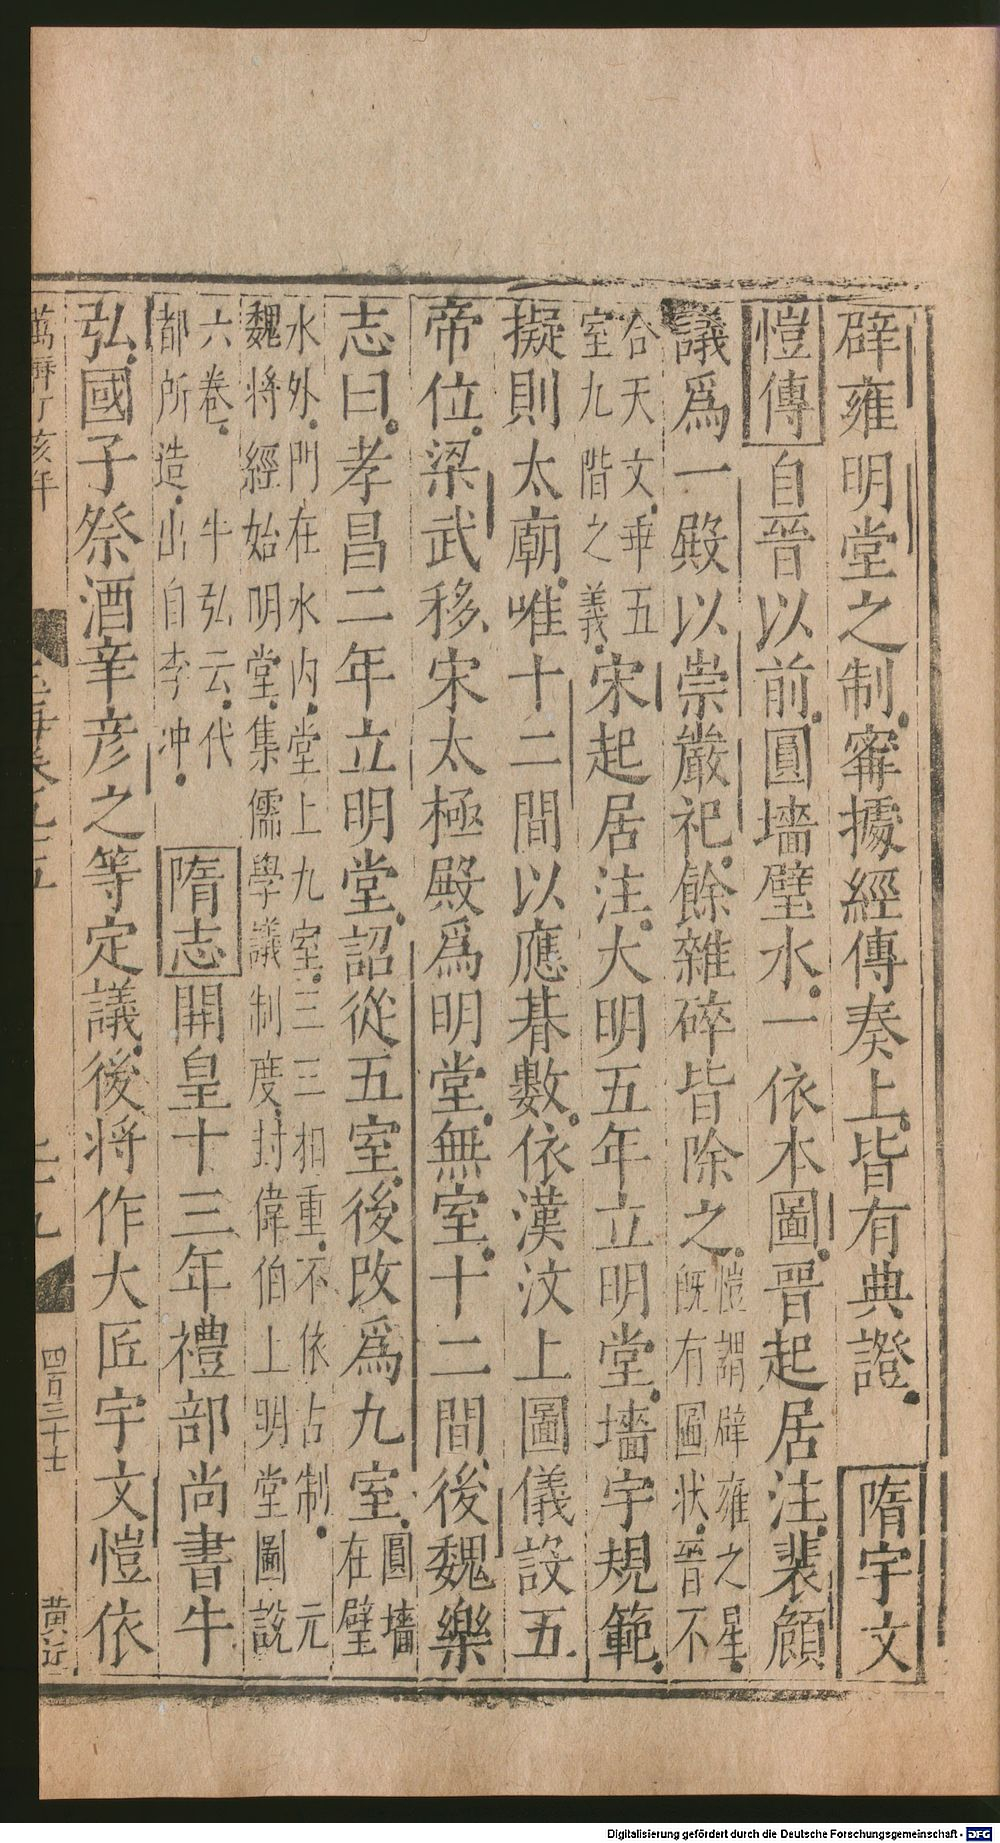 辟雍明堂之制審據經傳奏上皆有典證　隋宇文
愷傳自晉以前圓墻璧水一依本圖晉起居注裴頠
議爲一殿以崇嚴祀餘雜碎皆除之愷謂辟雍之星既有圖狀晉不
合天文垂五室九階之義宋起居注大明五年立明堂墻宇規範
擬則太廟唯十二間以應朞數依漢汶上圖儀設五
帝位梁武移宋太極殿爲明堂無室十二間後魏樂
志曰孝昌二年立明堂詔從五室後改爲九室圓墻在璧
水外門在水內堂上九室三三相重不依古制　元魏將經始明堂集儒學議制度封偉伯上明堂圖說
六卷　牛弘云代都所造出自李冲　隋志開皇十三年禮部尚書牛
弘國子祭酒辛彦之等定議後將作大匠宇文愷依
萬曆丁亥年　玉海卷九十五　二十九　四百三十七　黄近
Digitalisierung gefördert durch die Deutsche Forschungsgemeinschaft - DFG